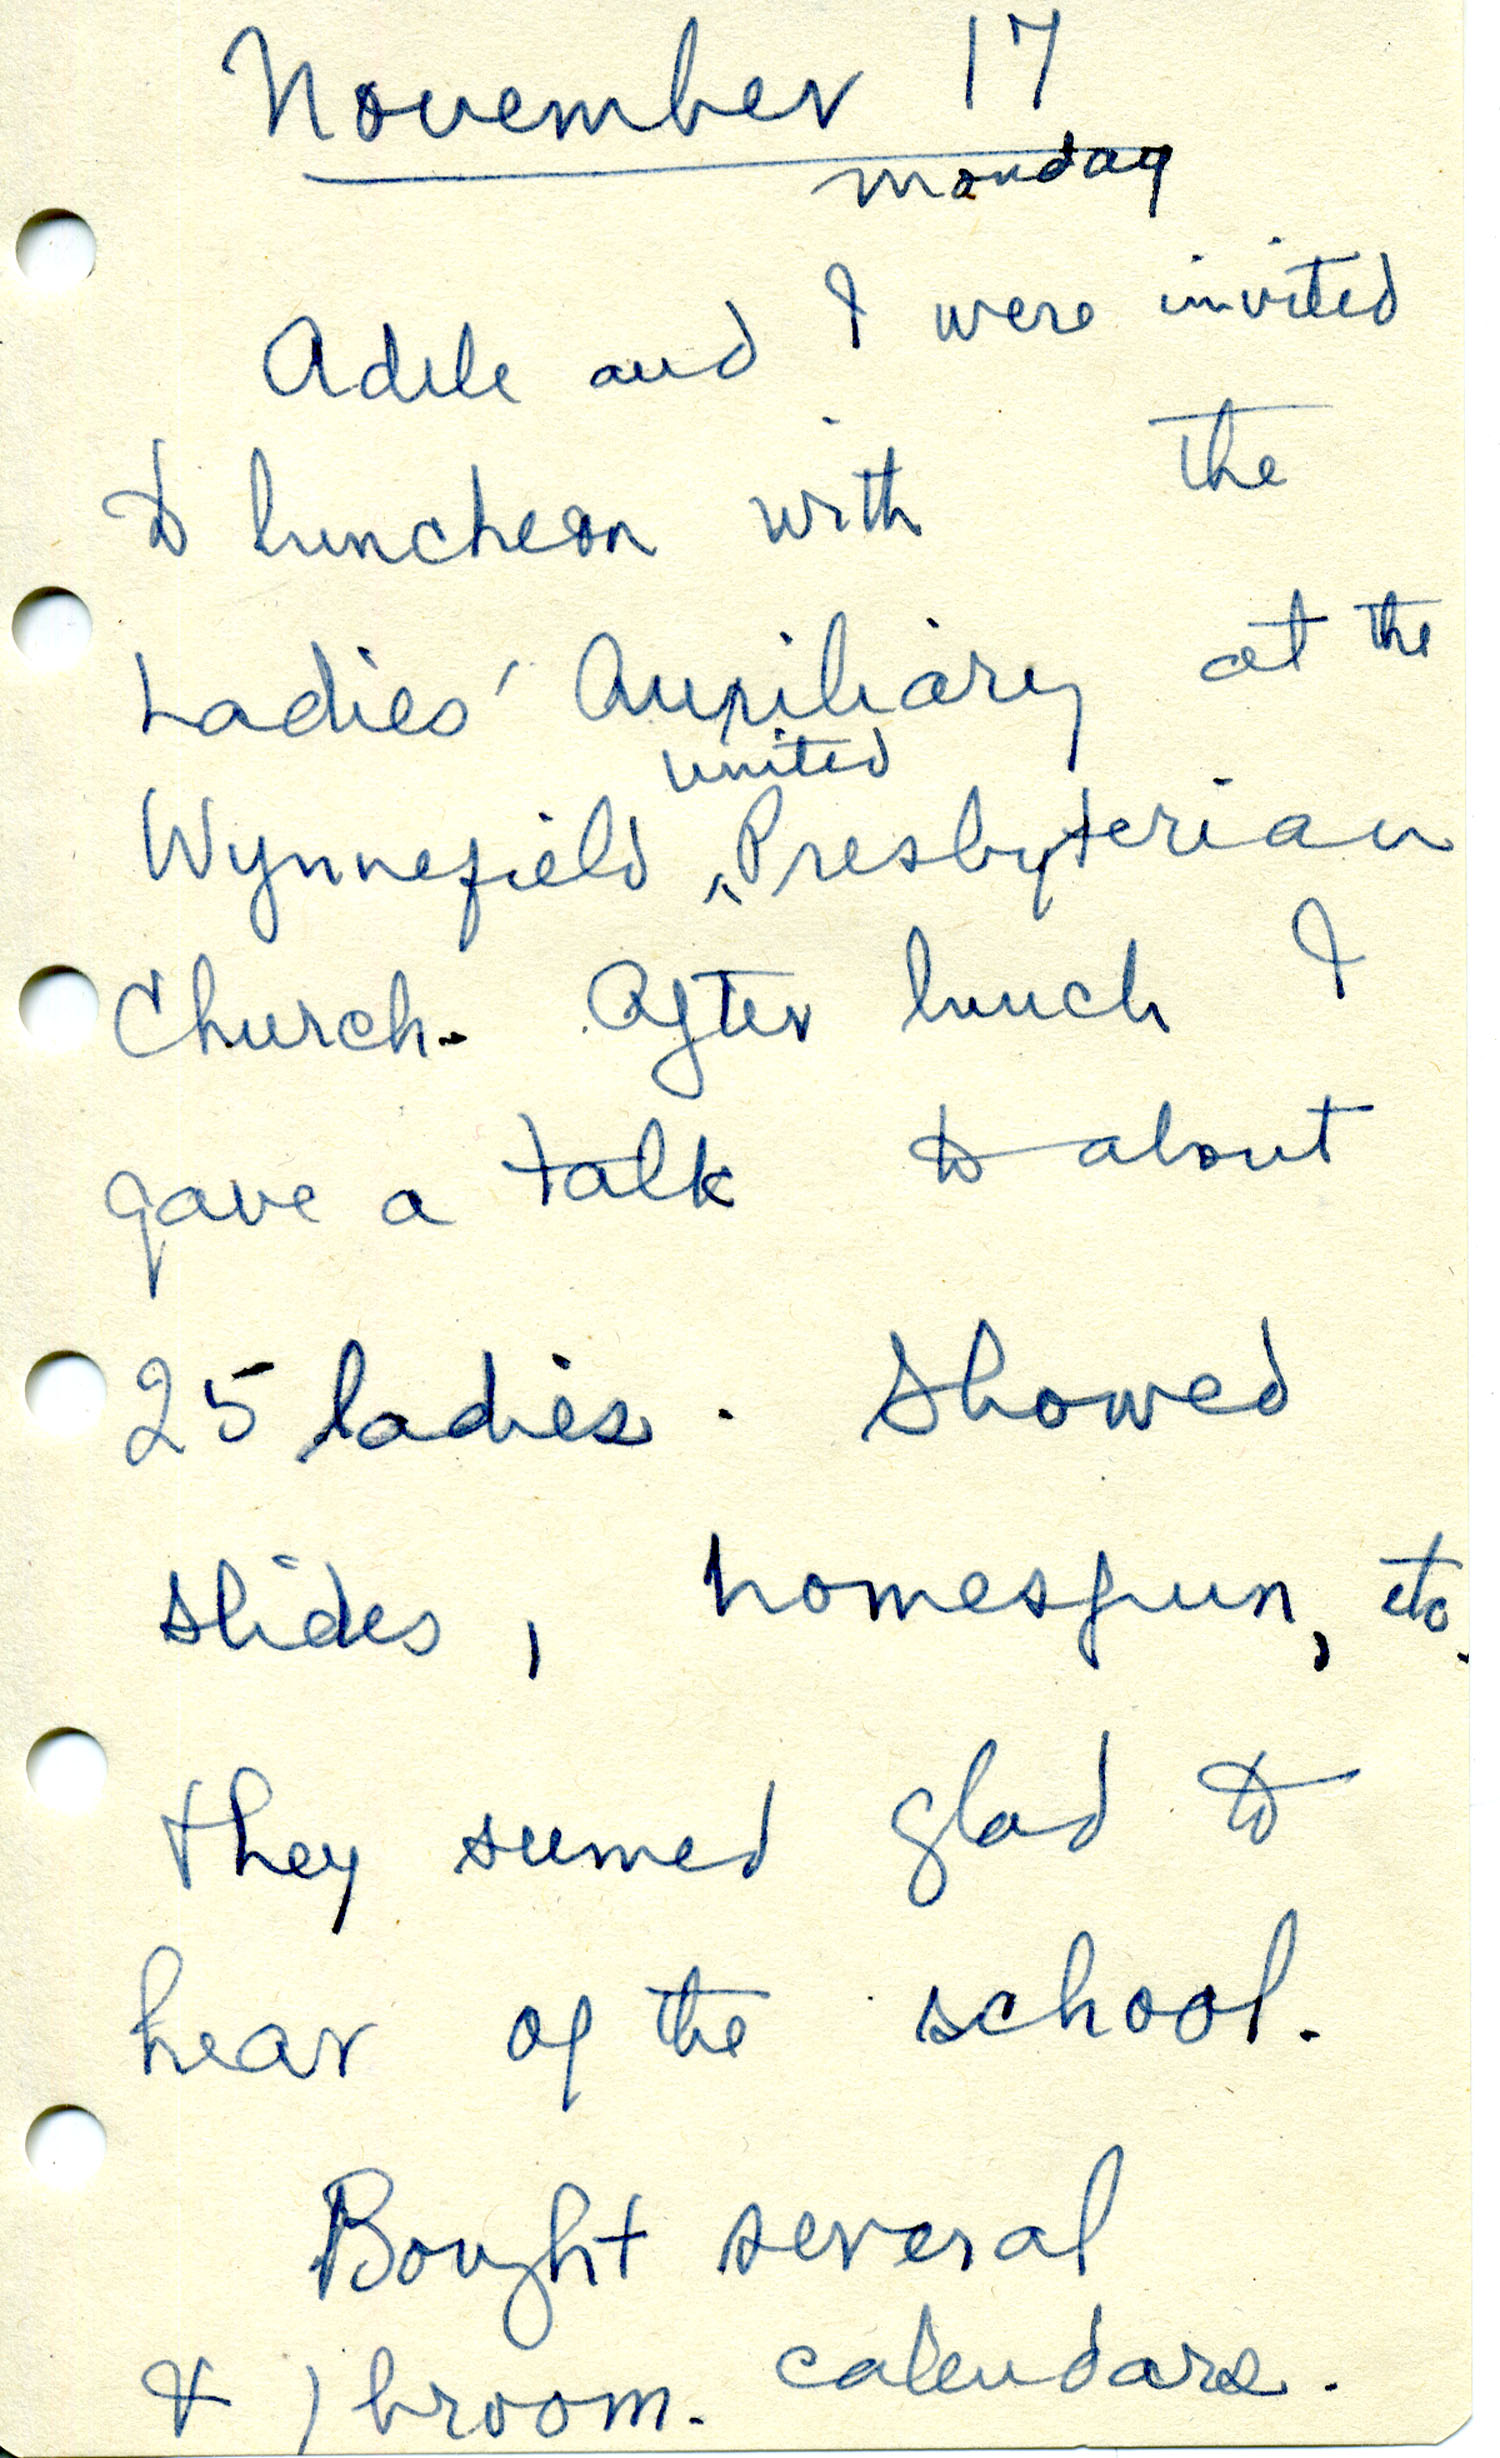 November 17
Monday
Adele and I were invited
to luncheon with the
Ladies' Auxiliary at the
united
Wynnefield ^ Presbyterian
Church. After lunch I
gave a talk to about
25 ladies. Showed
slides, homespun, etc.
they seemed glad to
hear of the school.
Bought several
calendars.
& 1 broom.